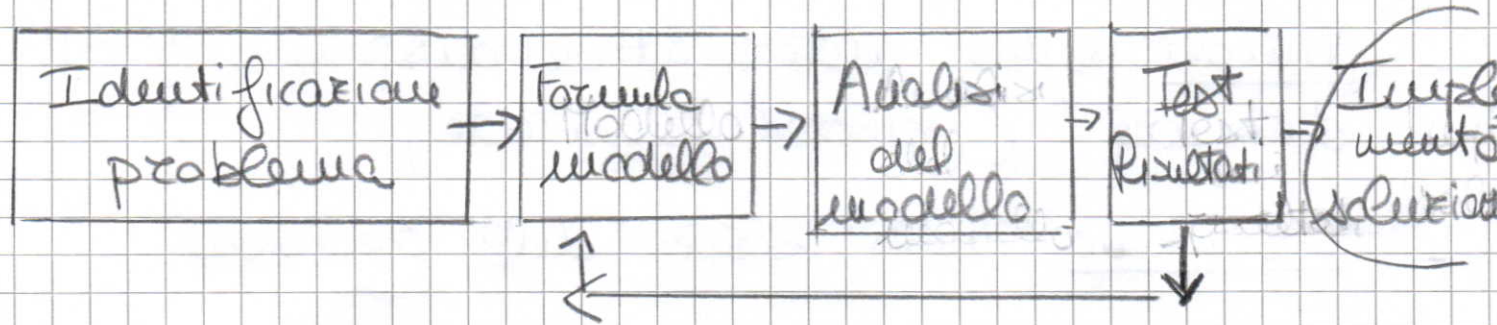 Identificazione
problema
Formula
modello
Analisi
del
modello
Test
Risultati
Imple
mento
soluzion